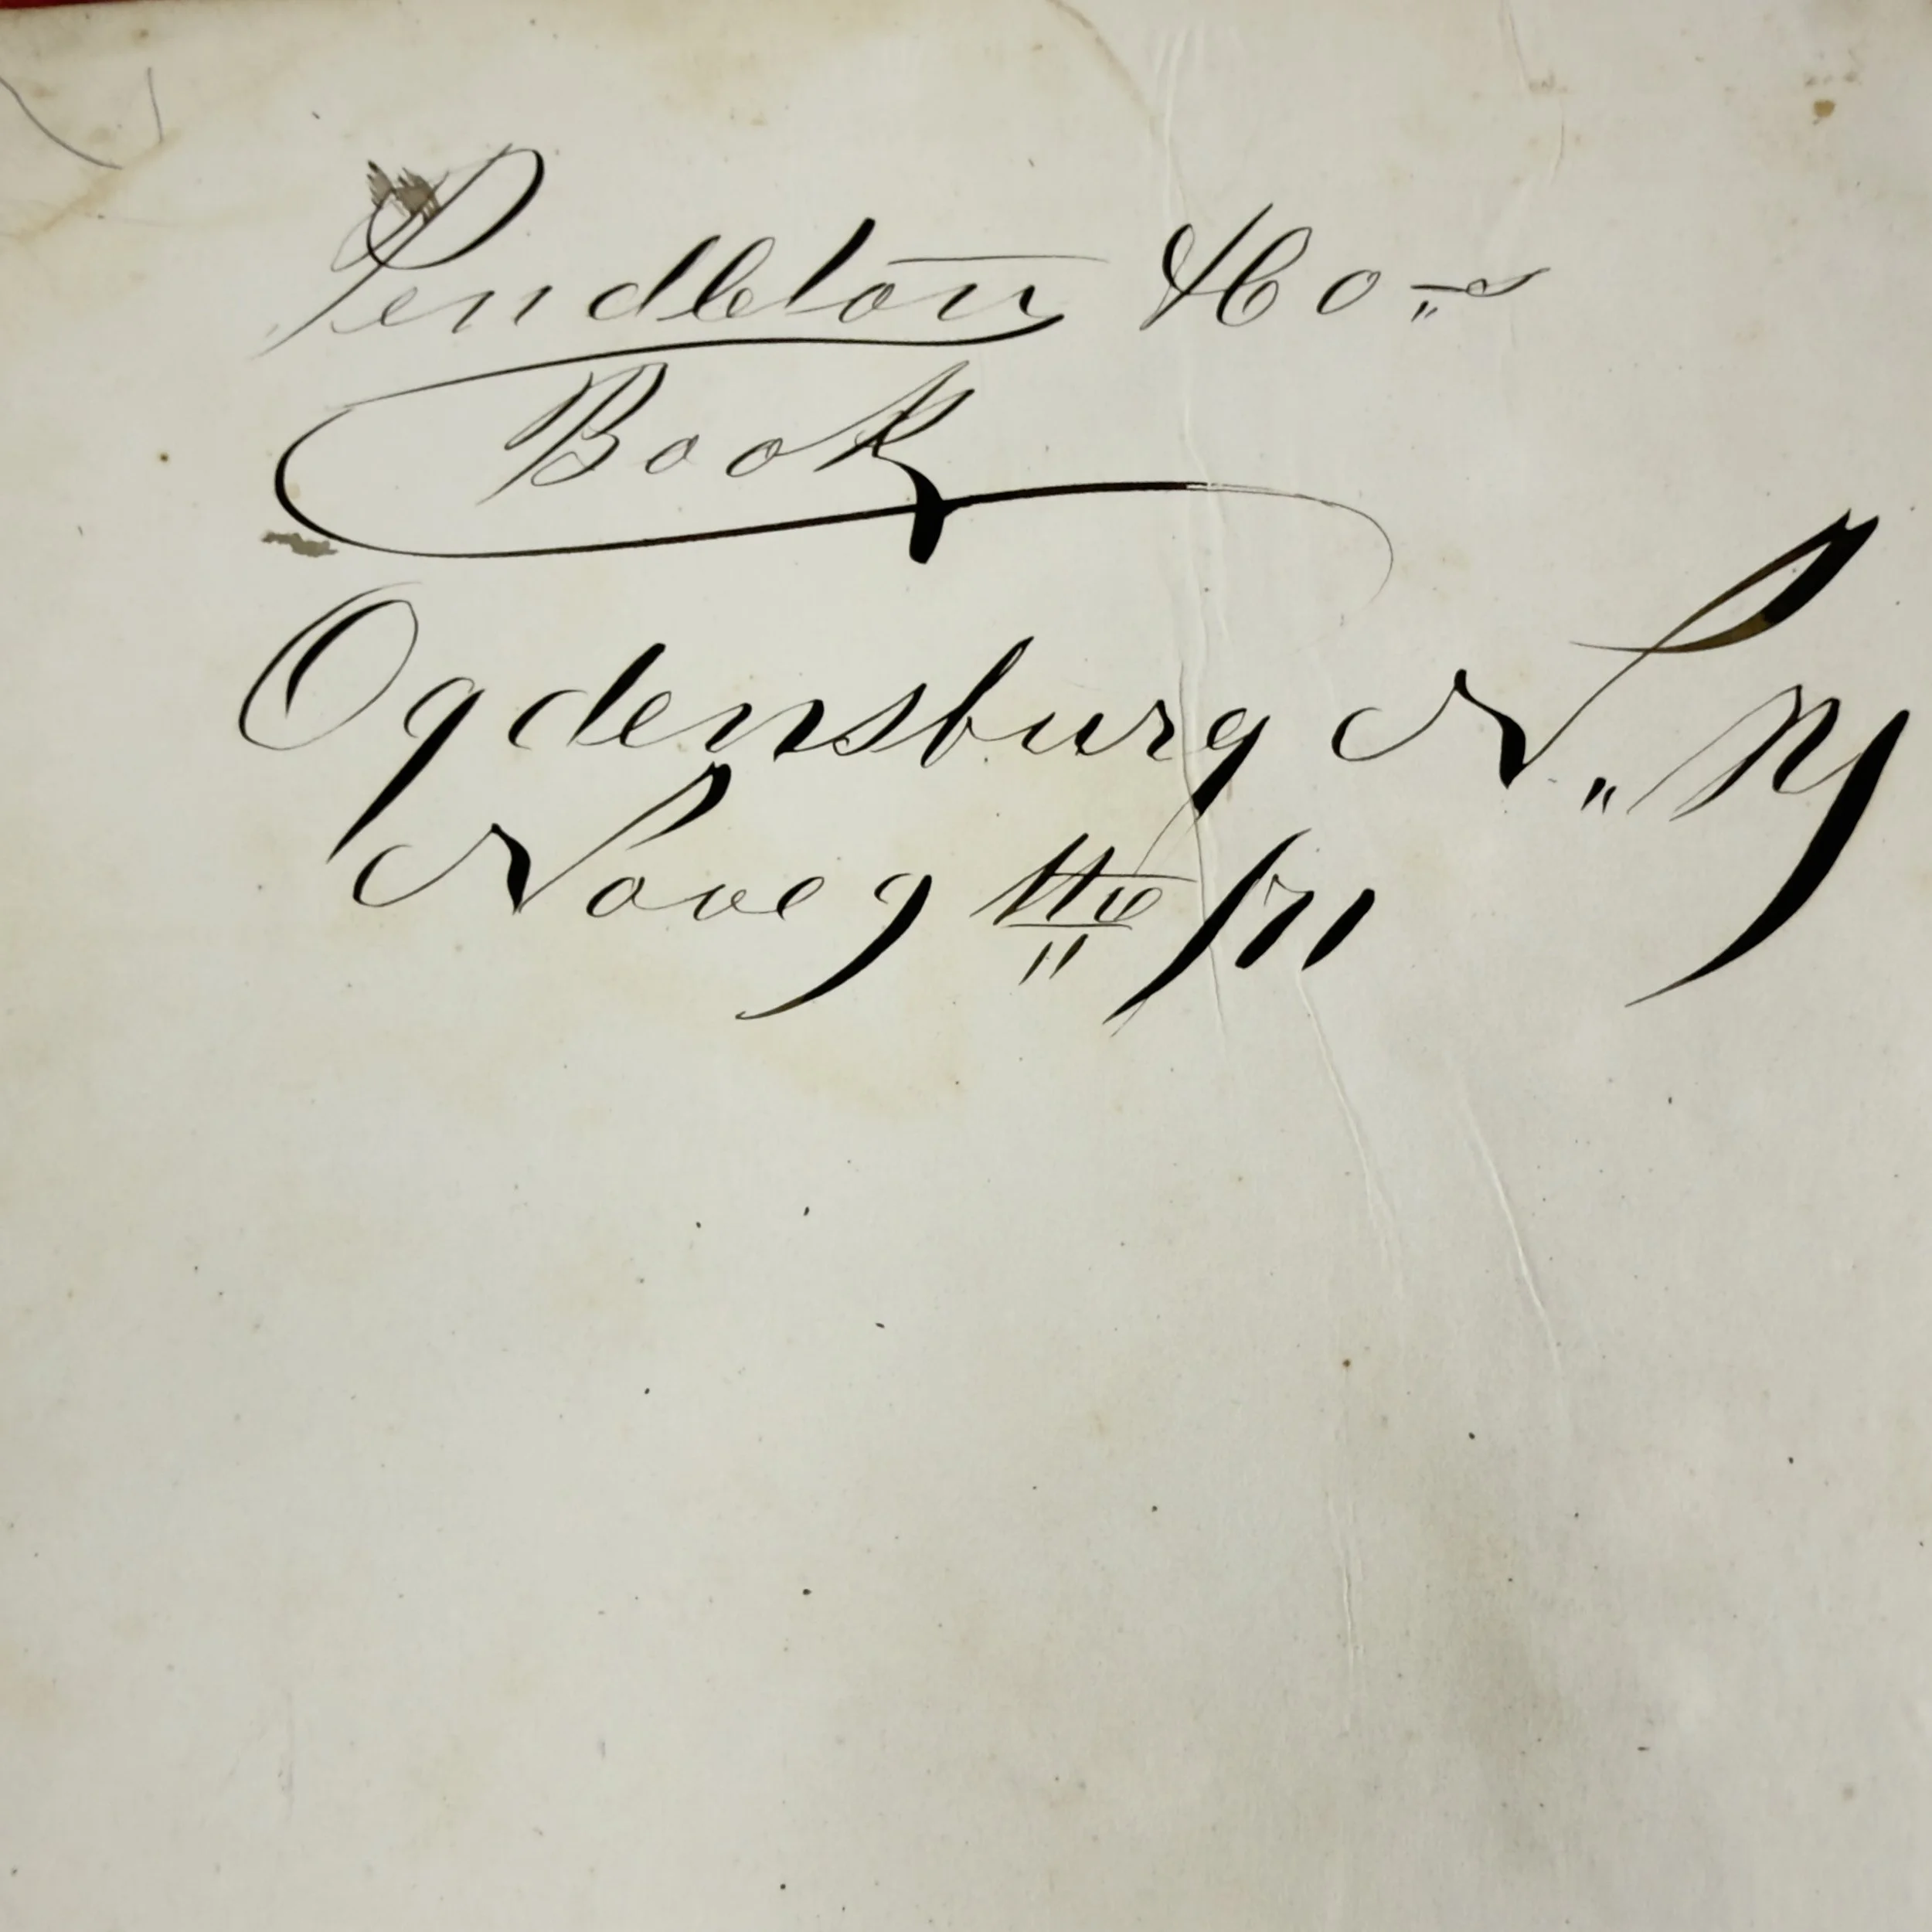 Pendleton & Co's
Book
Ogdensburg N. Y
Nove 9th /71